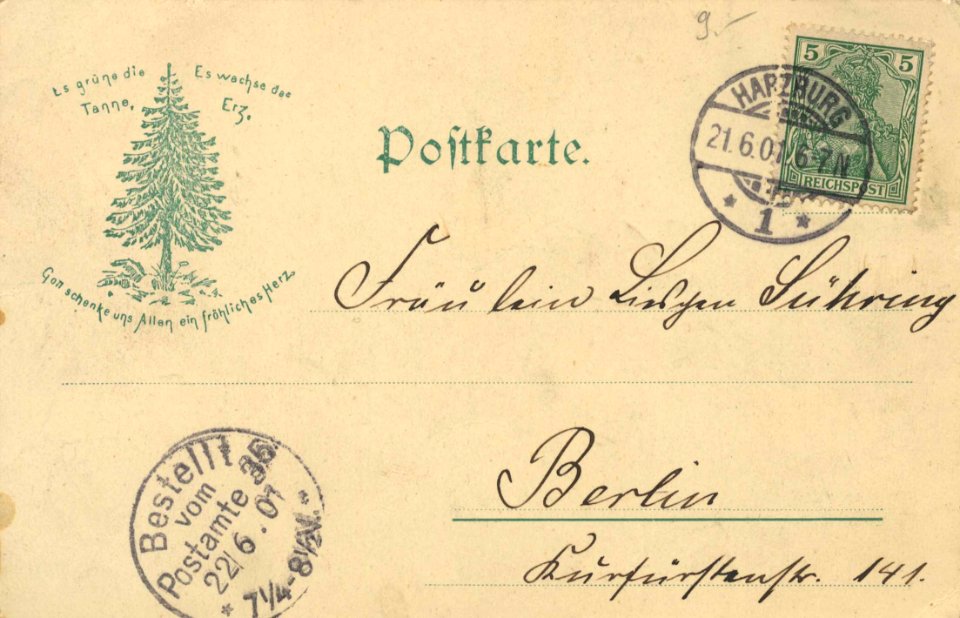 9.-
Es grüne die Tanne,
Es wachse das Erz,
Gott schenke uns Allen ein fröhliches Herz.
Postkarte.
5 5
REICHSPOST
HARZBURG
21.6.01.6-7N
* 1 *
Fräulein Lieschen Sühring
Berlin
Kurfürstenstr. 141.
Bestellt
vom
Postamte 35
22/6.01
* 7¼-8½V. *